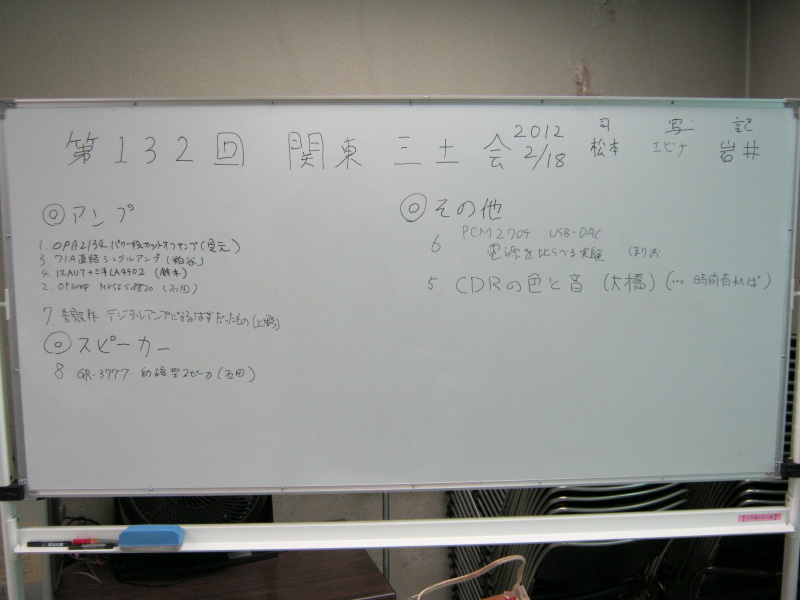 第132回 関東 三土会 2012 2/18
司 松本 写 エビナ 記 岩井
◎アンプ
1. OPA2134
3. 71A直結シングルアンプ (粕谷)
4. 12AU7+ミネLA4902 (鈴木)
2. OPamp MUSES8820 (石田)
7. 失敗作 デジタルアンプになるはずだったもの (上野)
◎スピーカー
8 GR-3777 励磁型スピーカ (石田)
◎その他
6 PCM2704 USB-DAC
電源を比らべる実験 ほりお
5. CDRの色と音 (大橋) (… 時間有れば)